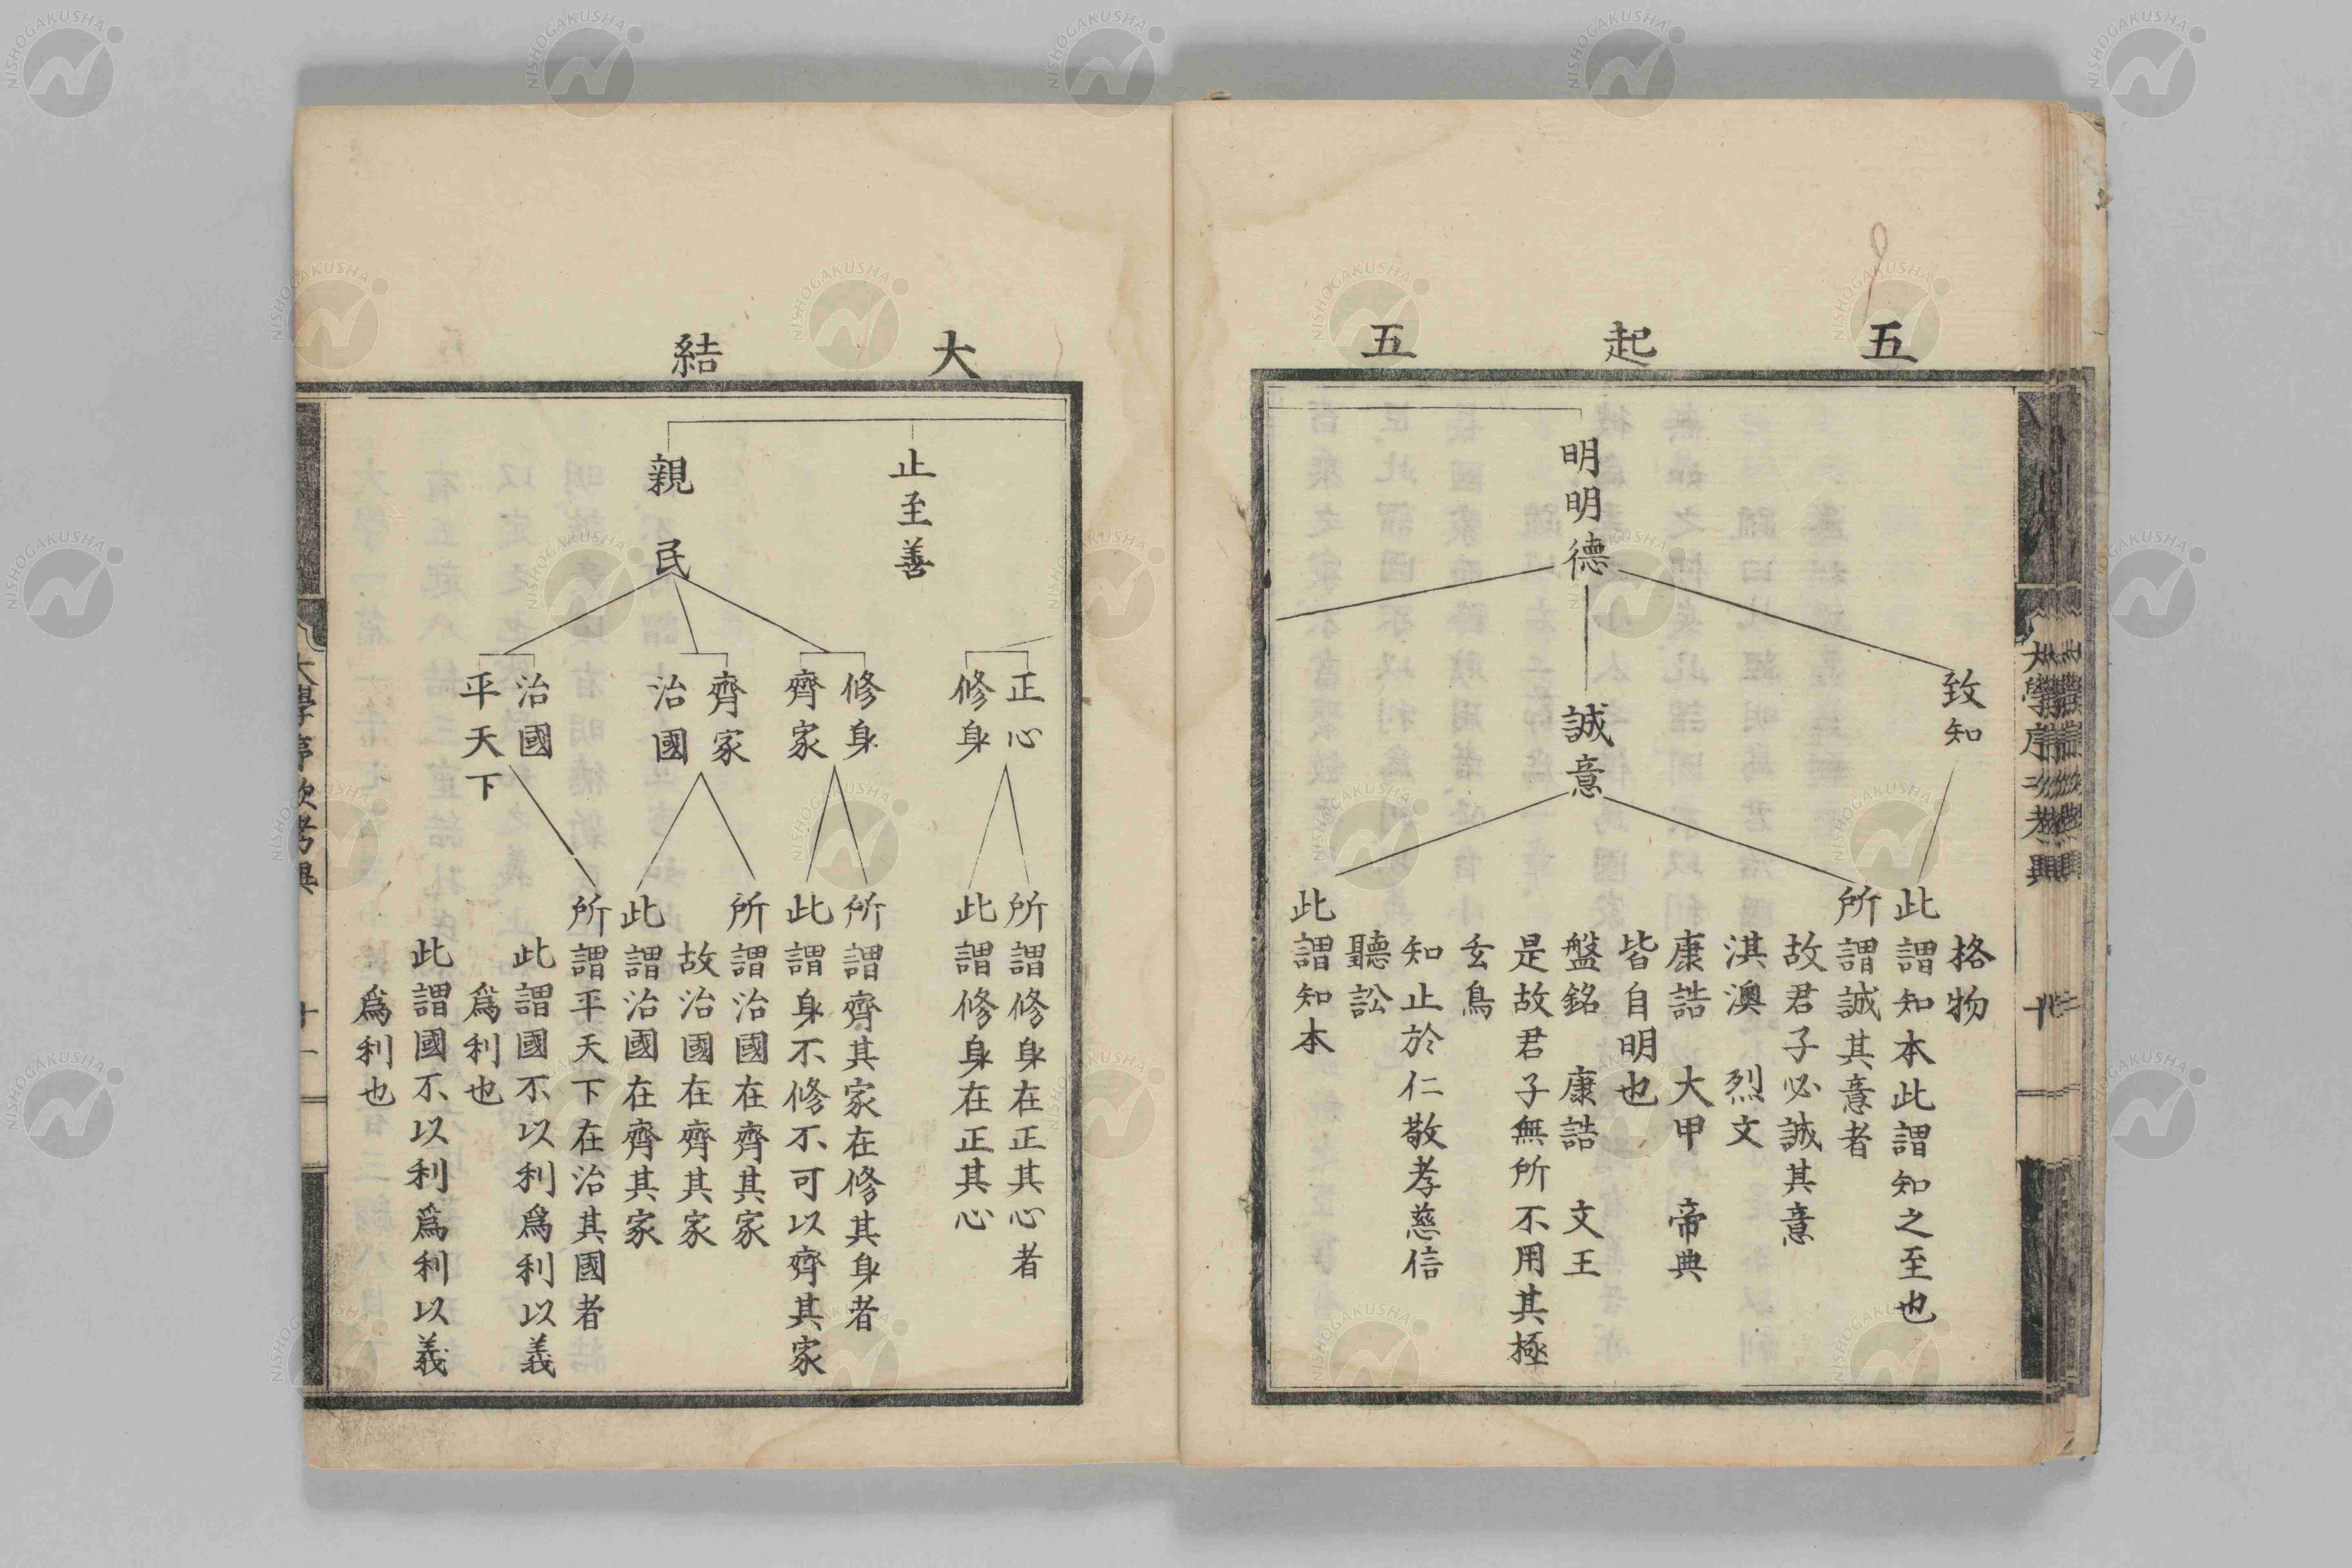 五
起
五
明明德
致知
誠意
格物
此謂知本此謂知之至也
所謂誠其意者
故君子必誠其意
淇澳 烈文
康誥 大甲 帝典
皆自明也
盤銘 康誥 文王
是故君子無所不用其極
玄鳥
知止於仁敬孝慈信
聽訟
此謂知本
大學序次考異
大
結
止至善
親民
正心
修身
修身
齊家
齊家
治國
治國
平天下
所謂修身在正其心者
此謂修身在正其心
所謂齊其家在修其身者
此謂身不修不可以齊其家
所謂治國在齊其家
故治國在齊其家
此謂治國在齊其家
所謂平天下在治其國者
此謂國不以利爲利以義
爲利也
此謂國不以利爲利以義
爲利也
大學序次考異
十一
NISHOGAKUSHA